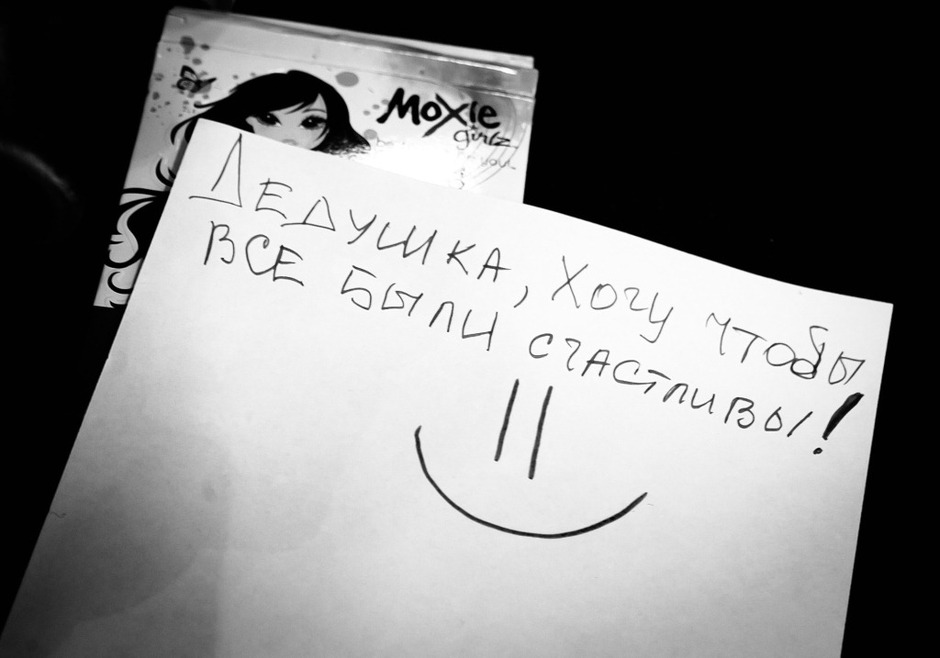 MOXIE
girlz
ДЕДУШКА, ХОЧУ ЧТОБЫ
ВСЕ БЫЛИ СЧАСТЛИВЫ!